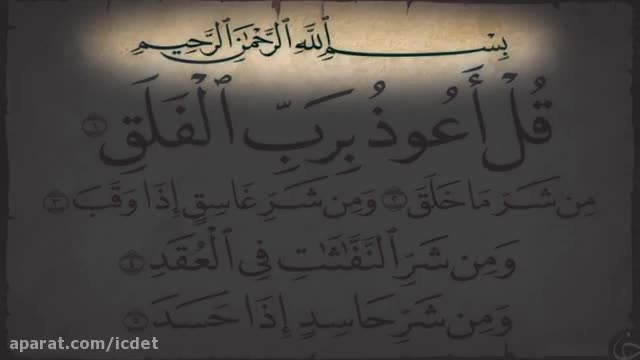 بِسْمِ اللَّهِ الرَّحْمَٰنِ الرَّحِيمِ
قُلْ أَعُوذُ بِرَبِّ الْفَلَقِ ١
مِن شَرِّ مَا خَلَقَ ٢ وَمِن شَرِّ غَاسِقٍ إِذَا وَقَبَ ٣
وَمِن شَرِّ النَّفَّاثَاتِ فِي الْعُقَدِ ٤
وَمِن شَرِّ حَاسِدٍ إِذَا حَسَدَ ٥
aparat.com/icdet